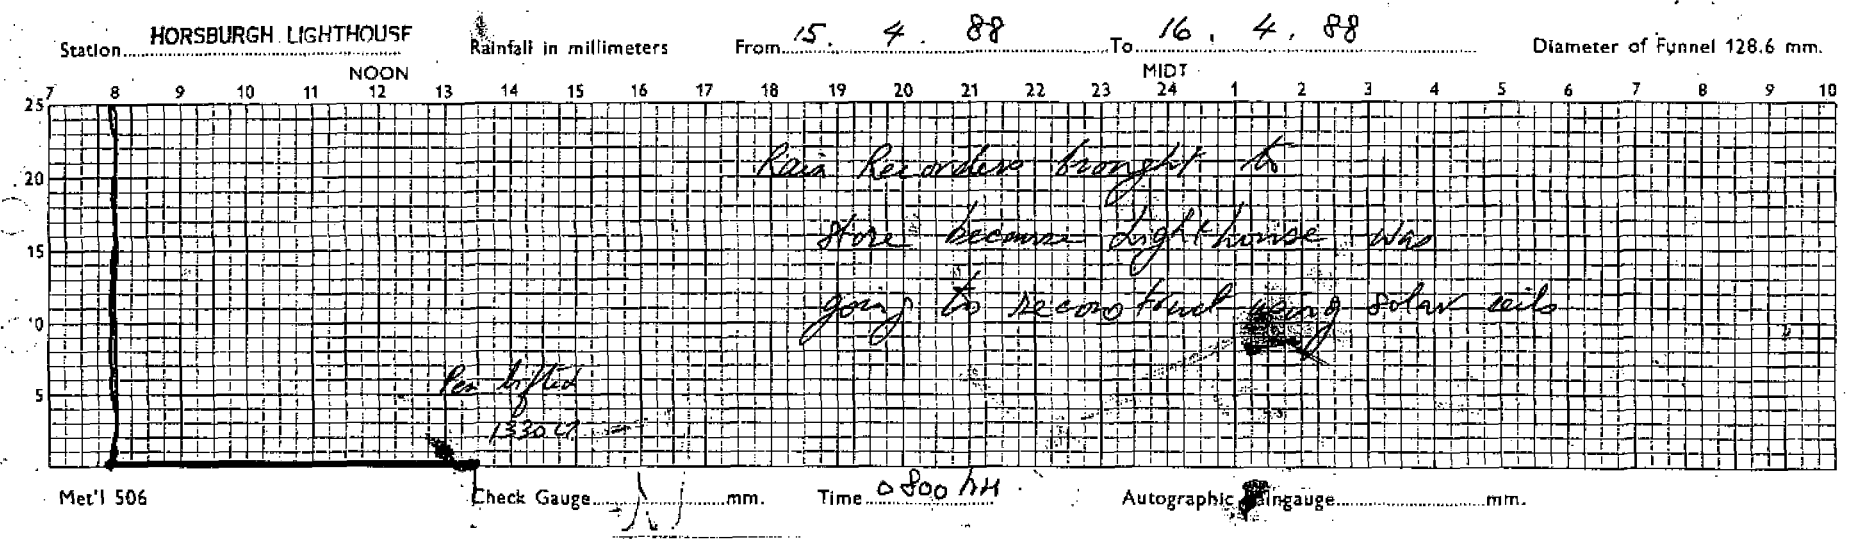 Station HORSBURGH LIGHTHOUSE Rainfall in millimeters From 15. 4. 88 To 16. 4. 88 Diameter of Funnel 128.6 mm.
NOON MIDT
7 8 9 10 11 12 13 14 15 16 17 18 19 20 21 22 23 24 1 2 3 4 5 6 7 8 9 10
25
Rain Recorders brought to
20
store because Lighthouse was
15
going to reconstruct using solar cells
10
Pen lifted
5
1330 LT
Met'l 506 Check Gauge mm. Time 0800 hH Autographic Raingauge mm.